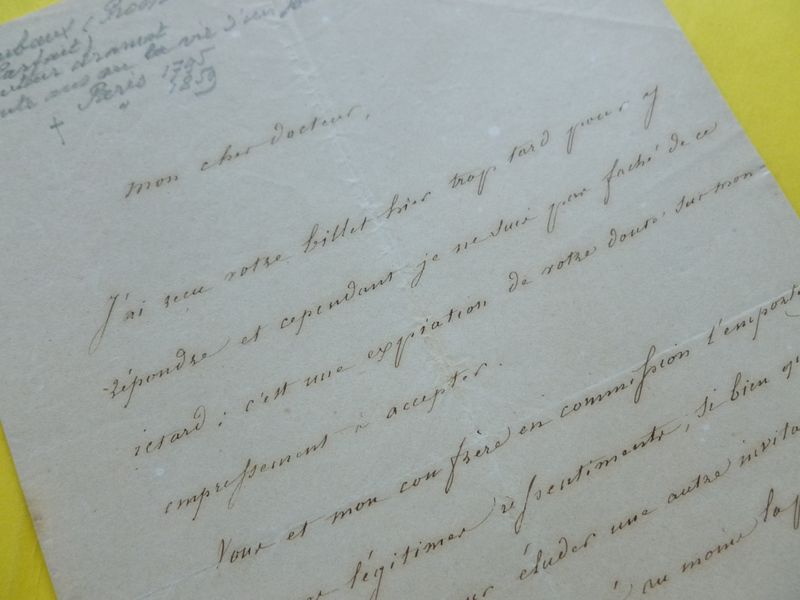 Parfait)
auteur dramat
ans ou la vie d'un
† Paris 1795
" 1859
mon cher docteur,
J'ai reçu votre billet hier trop tard pour y
répondre et cependant je ne suis pas faché de ce
retard ; c'est une expiation de votre doute sur mon
empressement à accepter.
Vous et mon confrère en commission l'emporte
légitimes ressentiments, si bien qu
éluder une autre invita
ou moins la p